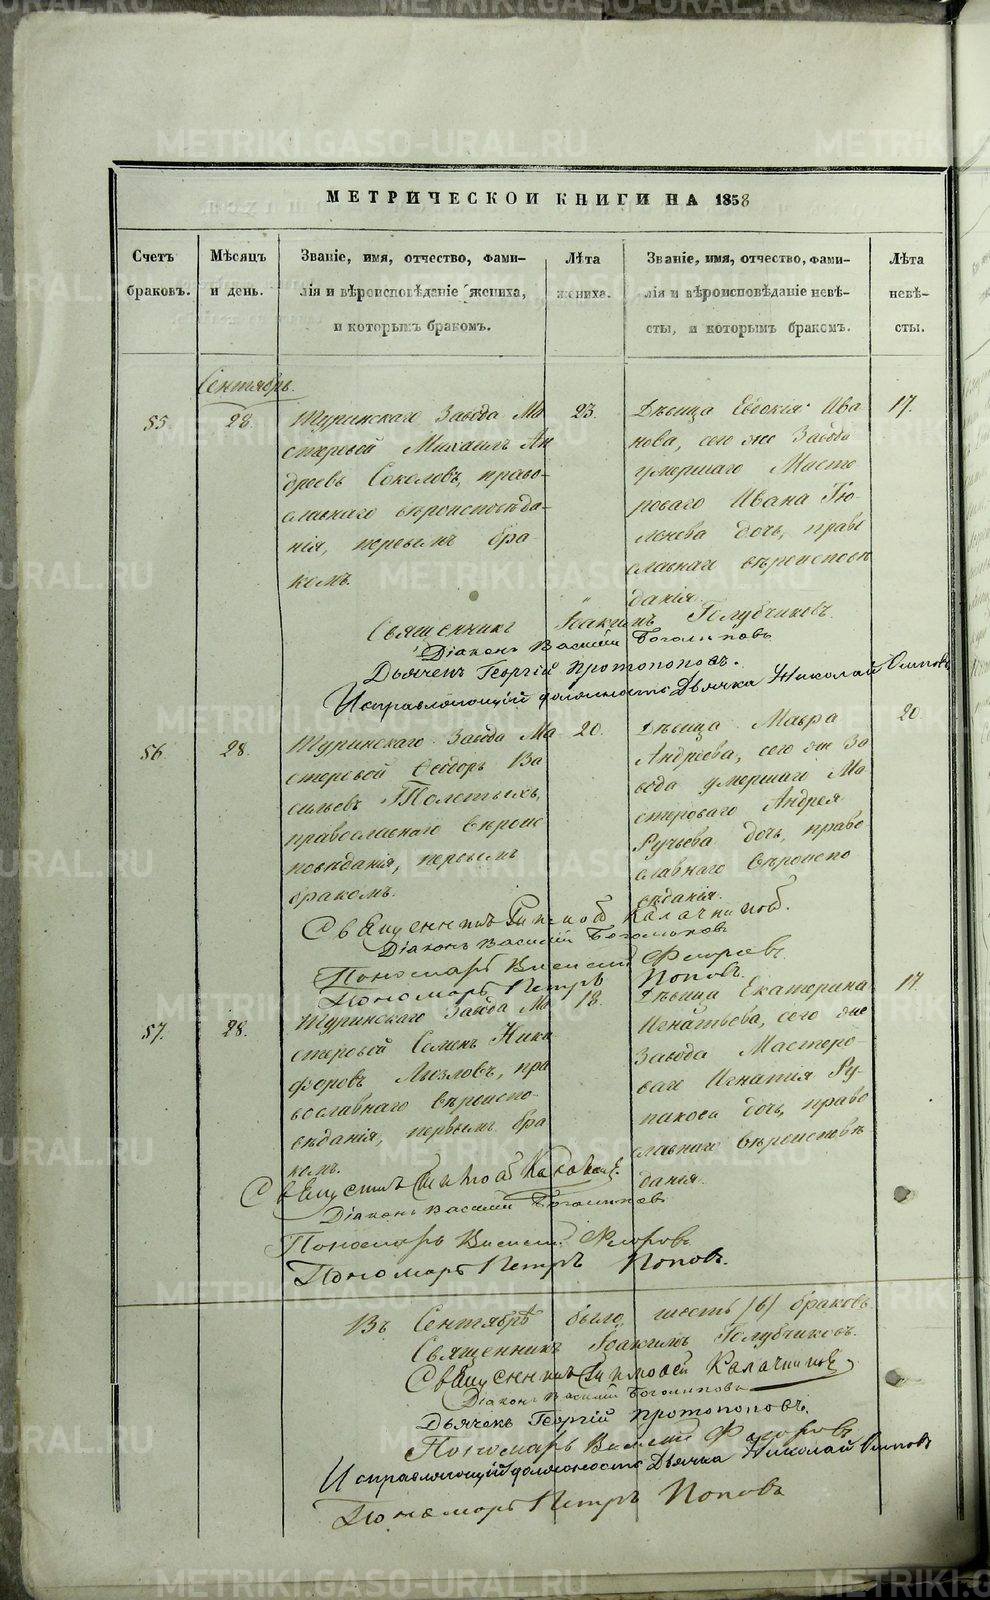 МЕТРИЧЕСКОЙ КНИГИ НА 1858
Счетъ браковъ.
Мѣсяцъ и день.
Званіе, имя, отчество, фами-
лія и вѣроисповѣданіе жениха,
и которымъ бракомъ.
Лѣта жениха.
Званіе, имя, отчество, фами-
лія и вѣроисповѣданіе невѣ-
сты, и которымъ бракомъ.
Лѣта невѣ-
сты.
Сентябрь.
55.
28.
Туринскаго Завода Ма
стеровой Михаилъ Ан
дреевъ Соколовъ, право-
славнаго вѣроисповѣда-
нія, первымъ бра-
комъ.
23.
Дѣвица Евдокія Ива
нова, сего же Завода
умершаго Масте
роваго Ивана
дочь, право
славнаго вѣроисповѣ
данія.
17.
Священникъ Іоакимъ Голубчиковъ.
Діаконъ Василій Боголиповъ
Дьячекъ Георгій Протопоповъ.
Исправляющій должность Дьячка Николай Осиповъ
56.
28.
Туринскаго Завода Ма
стеровой Ѳеодоръ Ва
сильевъ Толстыхъ,
православнаго вѣроис
повѣданія, первымъ
бракомъ.
20.
Дѣвица Мавра
Андреева, сего же За
вода умершаго Ма
стероваго Андрея
Ручьева дочь, право
славнаго вѣроиспо
вѣданія.
20.
Священникъ Тимофей Калачниковъ.
Діаконъ Василій Боголиповъ
Пономарь Василій Флоровъ.
Пономарь Петръ Поповъ.
57.
28.
Туринскаго Завода Ма
стеровой Семенъ Ники
форовъ Лызловъ, пра
вославнаго вѣроиспо-
вѣданія, первымъ бра
комъ.
18.
Дѣвица Екатерина
Игнатьева, сего же
Завода Мастеро-
ваго Игнатія Ру-
дочь, право
славнаго вѣроисповѣ
данія.
17.
Священникъ Тимофей
Діаконъ Василій Боголиповъ
Пономарь Василій Флоровъ
Пономарь Петръ Поповъ.
Въ Сентябрѣ было шесть /6/ браковъ.
Священникъ Іоакимъ Голубчиковъ.
Священникъ Тимофей Калачниковъ
Діаконъ Василій Боголиповъ
Дьячекъ Георгій Протопоповъ.
Пономарь Василій Флоровъ
Исправляющій должность Дьячка Николай Осиповъ
Пономарь Петръ Поповъ
METRIKI.GASO-URAL.RU